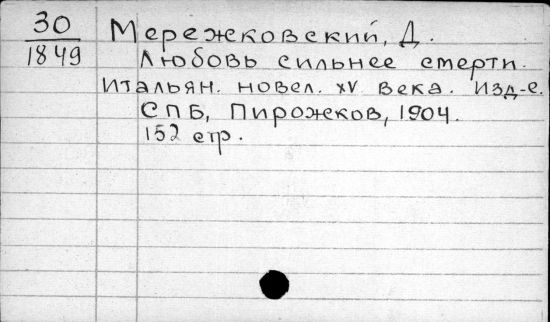 30
1849
Мережковский, Д.
Любовь сильнее смерти.
Итальян. новел. XV века. Изд-е.
СПБ, Пирожков, 1904.
152 стр.